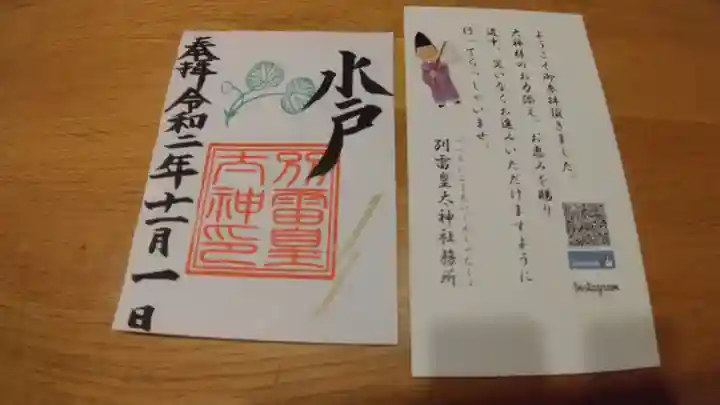 水戸
奉拝 令和二年十一月一日
別雷皇
大神印
ようこそ御参拝頂きました。
大神様のお力添え、お恵みを賜り
道中、災いなくお進みいただけますように
行ってらっしゃいませ。
別雷皇太神社務所
Instagram